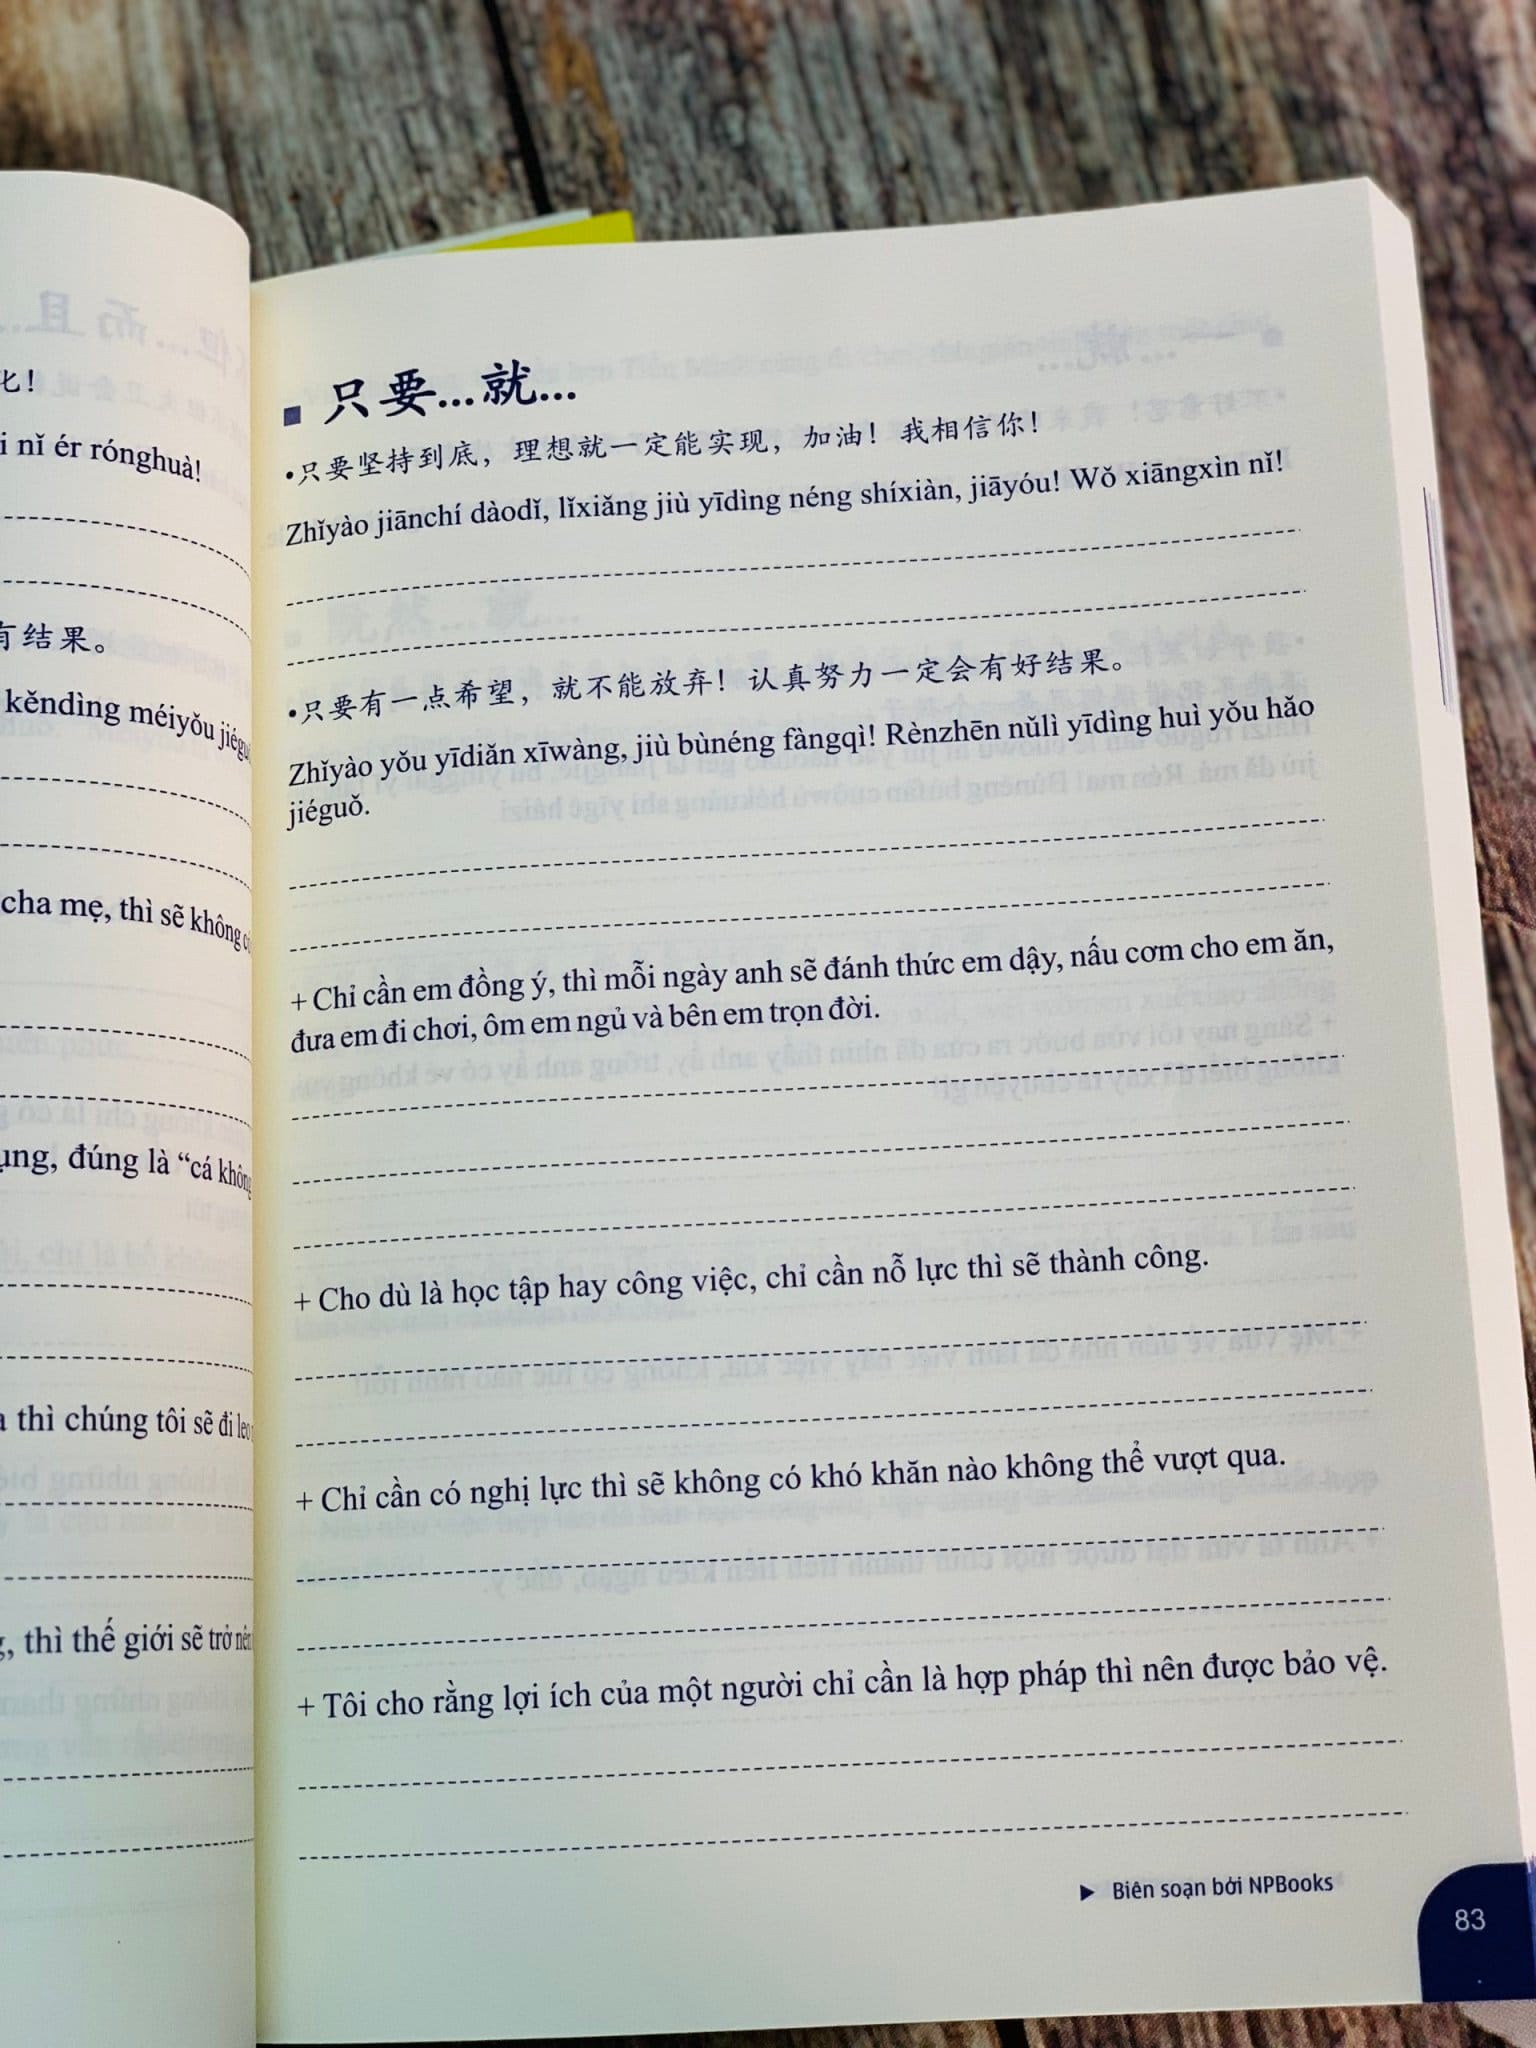 化！
i nǐ ér rónghuà!
有结果。
kěndìng méiyǒu jiéguǒ
cha mẹ, thì sẽ không
ụng, đúng là “cá không
thì chúng tôi sẽ đi leo
, thì thế giới sẽ trở nên
■ 只要...就...
•只要坚持到底，理想就一定能实现，加油！我相信你！
Zhǐyào jiānchí dàodǐ, lǐxiǎng jiù yīdìng néng shíxiàn, jiāyóu! Wǒ xiāngxìn nǐ!
•只要有一点希望，就不能放弃！认真努力一定会有好结果。
Zhǐyào yǒu yīdiǎn xīwàng, jiù bùnéng fàngqì! Rènzhēn nǔlì yīdìng huì yǒu hǎo
jiéguǒ.
+ Chỉ cần em đồng ý, thì mỗi ngày anh sẽ đánh thức em dậy, nấu cơm cho em ăn,
đưa em đi chơi, ôm em ngủ và bên em trọn đời.
+ Cho dù là học tập hay công việc, chỉ cần nỗ lực thì sẽ thành công.
+ Chỉ cần có nghị lực thì sẽ không có khó khăn nào không thể vượt qua.
+ Tôi cho rằng lợi ích của một người chỉ cần là hợp pháp thì nên được bảo vệ.
▶ Biên soạn bởi NPBooks
83